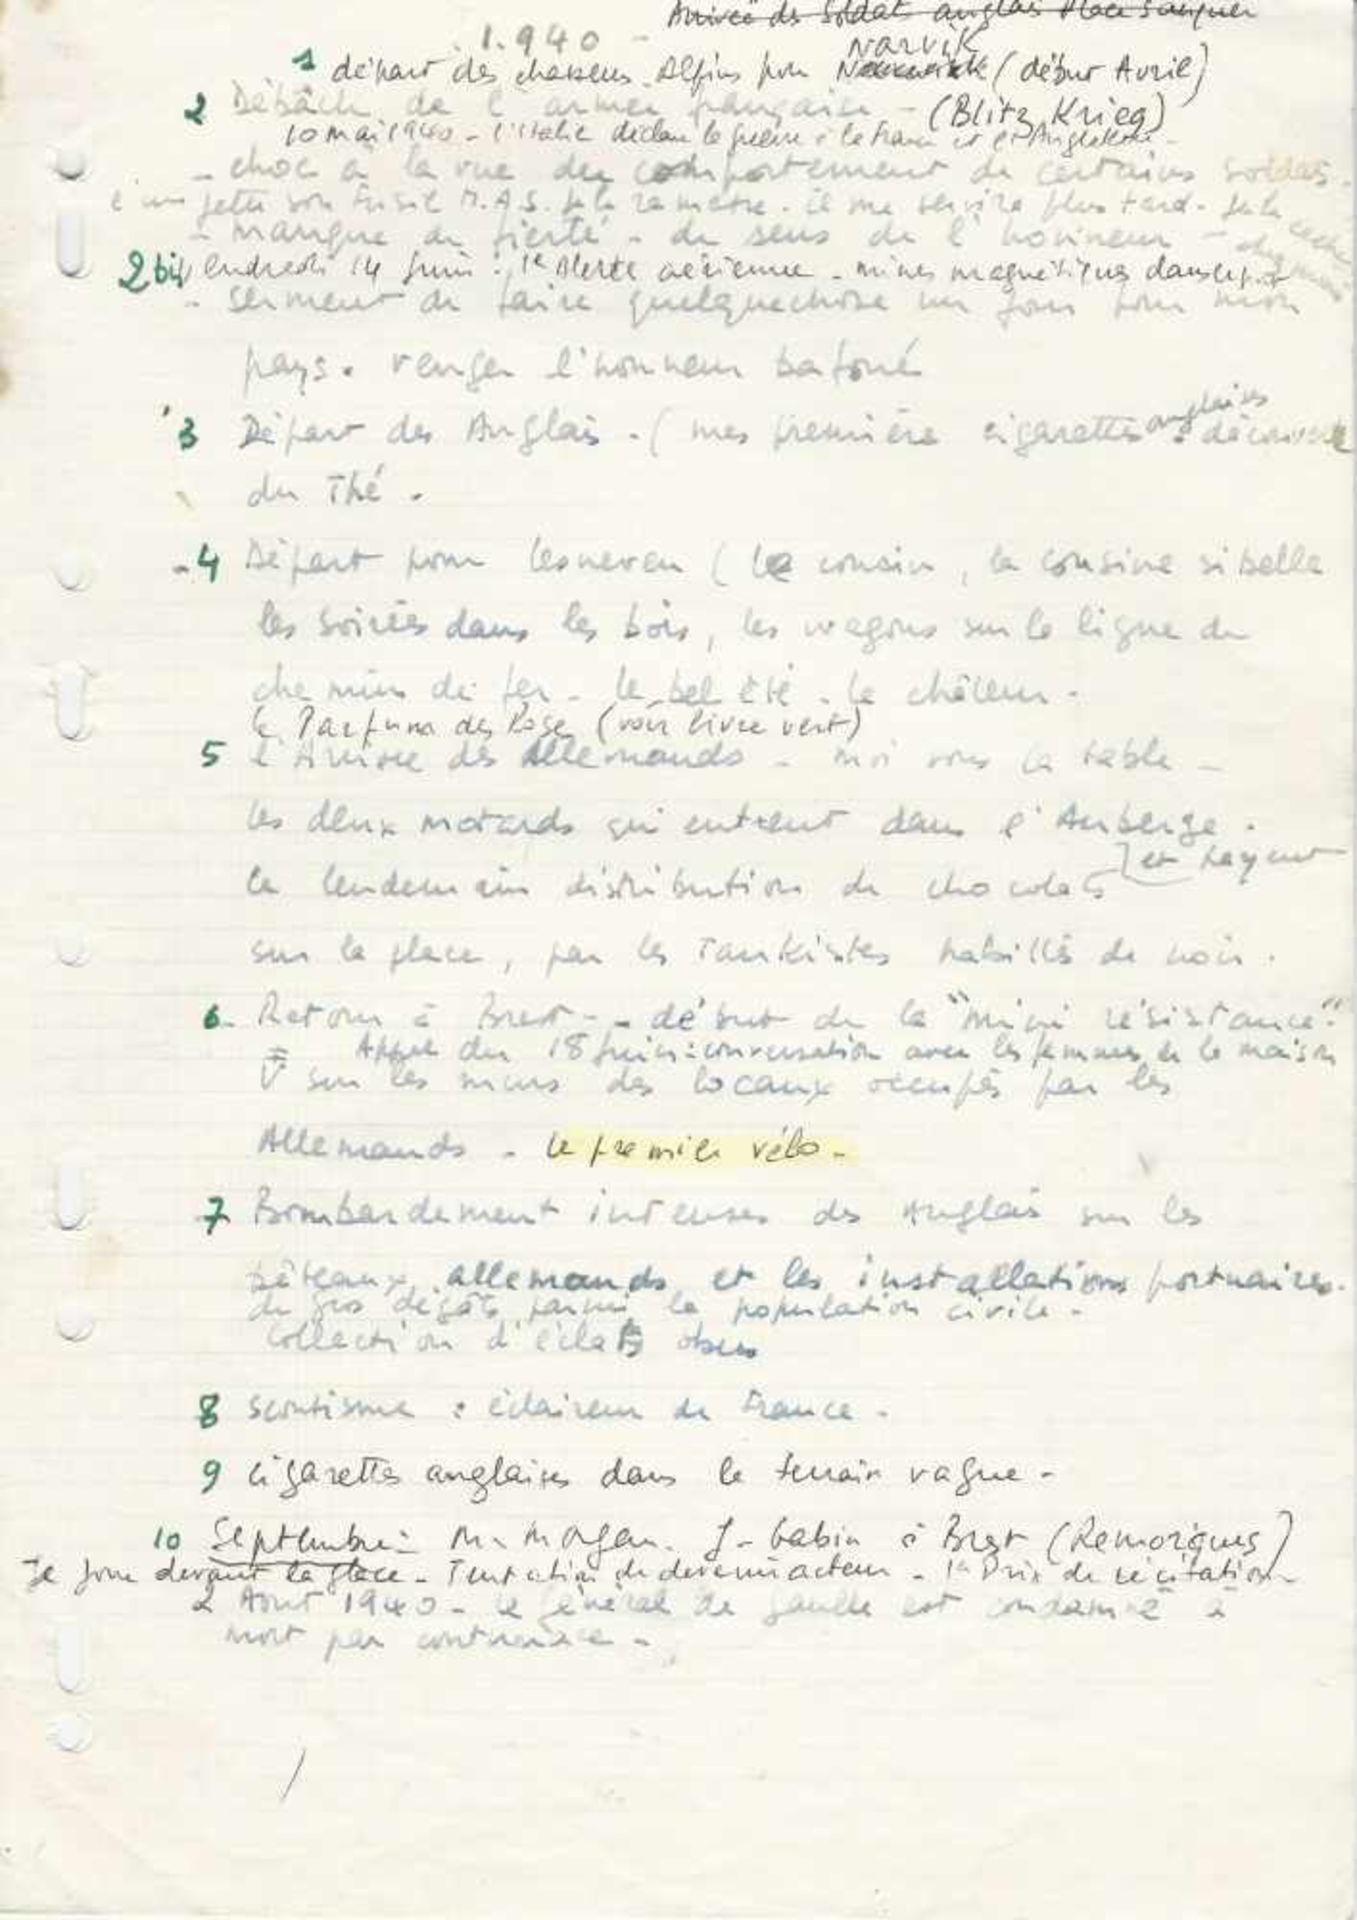 Arrivée des Soldats anglais Place Sanquer
1.940 -
Narvik
1 départ des chasseurs Alpins pour (début Avril)
2 Débâcle de l'armée française - (Blitz Krieg)
10 mai 1940 - l'Italie déclare la guerre à la France et l'Angleterre -
- choc à la vue du comportement de certains soldats.
jette son fusil M.A.S. je le ramasse. il me servira plus tard. je le cache
- manque de fierté - de sens de l'honneur - chez moi
2 bis Vendredi 14 juin : 1e Alerte aérienne - mines magnétiques dans le port
- serment de faire quelquechose un jour pour mon
pays. venger l'honneur bafoué
3 Départ des Anglais - (mes première cigarettes anglaises : découverte
du Thé .
- 4 Départ pour Lesneven (le cousin, la cousine si belle
les soirées dans les bois, les wagons sur la ligne de
chemins de fer - le bel été - la chaleur -
le Parfum des Roses (voir livre vert)
5 l'Arrivée des Allemands - moi sous la table -
les deux motards qui entrent dans l'Auberge .
et payent
le lendemain distribution de chocolats
sur la place, par les Tankistes habillés de noir .
6 - Retour à Brest - - début de la "mini résistance".
Appel du 18 juin : conversation avec les femmes de la maison
V sur les murs des locaux occupés par les
Allemands - le premier vélo -
7 Bombardement intenses des Anglais sur les
bâteaux allemands et les installations portuaires.
de gros dégâts parmi la population civile -
Collection d'éclats obus
8 scoutisme : éclaireur de France -
9 cigarettes anglaises dans le terrain vague -
10 Septembre - M. Morgan. J. Gabin à Brest (Remorques)
Je joue devant la glace - Tentation de devenir acteur - 1er Prix de récitation -
2 Aout 1940 - le général de Gaulle est condamné à
mort par contumace -